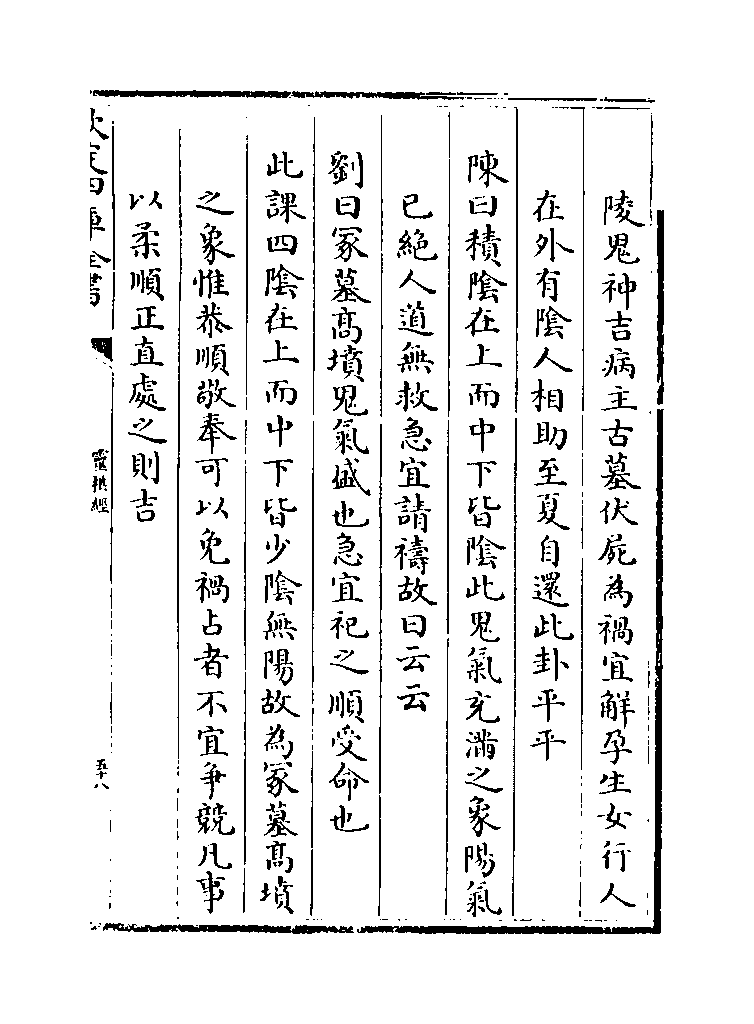 陵鬼神吉病主古墓伏屍為禍宜解孕生女行人
在外有陰人相助至夏自還此卦平平
陳曰積陰在上而中下皆陰此鬼氣充滿之象陽氣
已絶人道無救急宜請禱故曰云云
劉曰冢墓髙墳鬼氣盛也急宜祀之順受命也
此課四陰在上而中下皆少陰無陽故為冢墓髙墳
之象惟恭順敬奉可以免禍占者不宜爭競凡事
以柔順正直處之則吉
欽定四庫全書
靈棋經
五十八